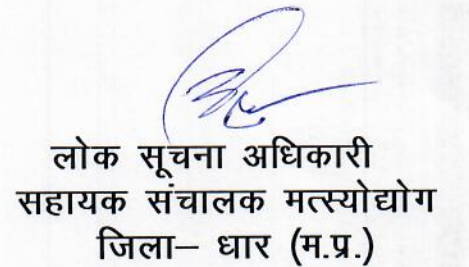 लोक सूचना अधिकारी
सहायक संचालक मत्स्योद्योग
जिला– धार (म.प्र.)